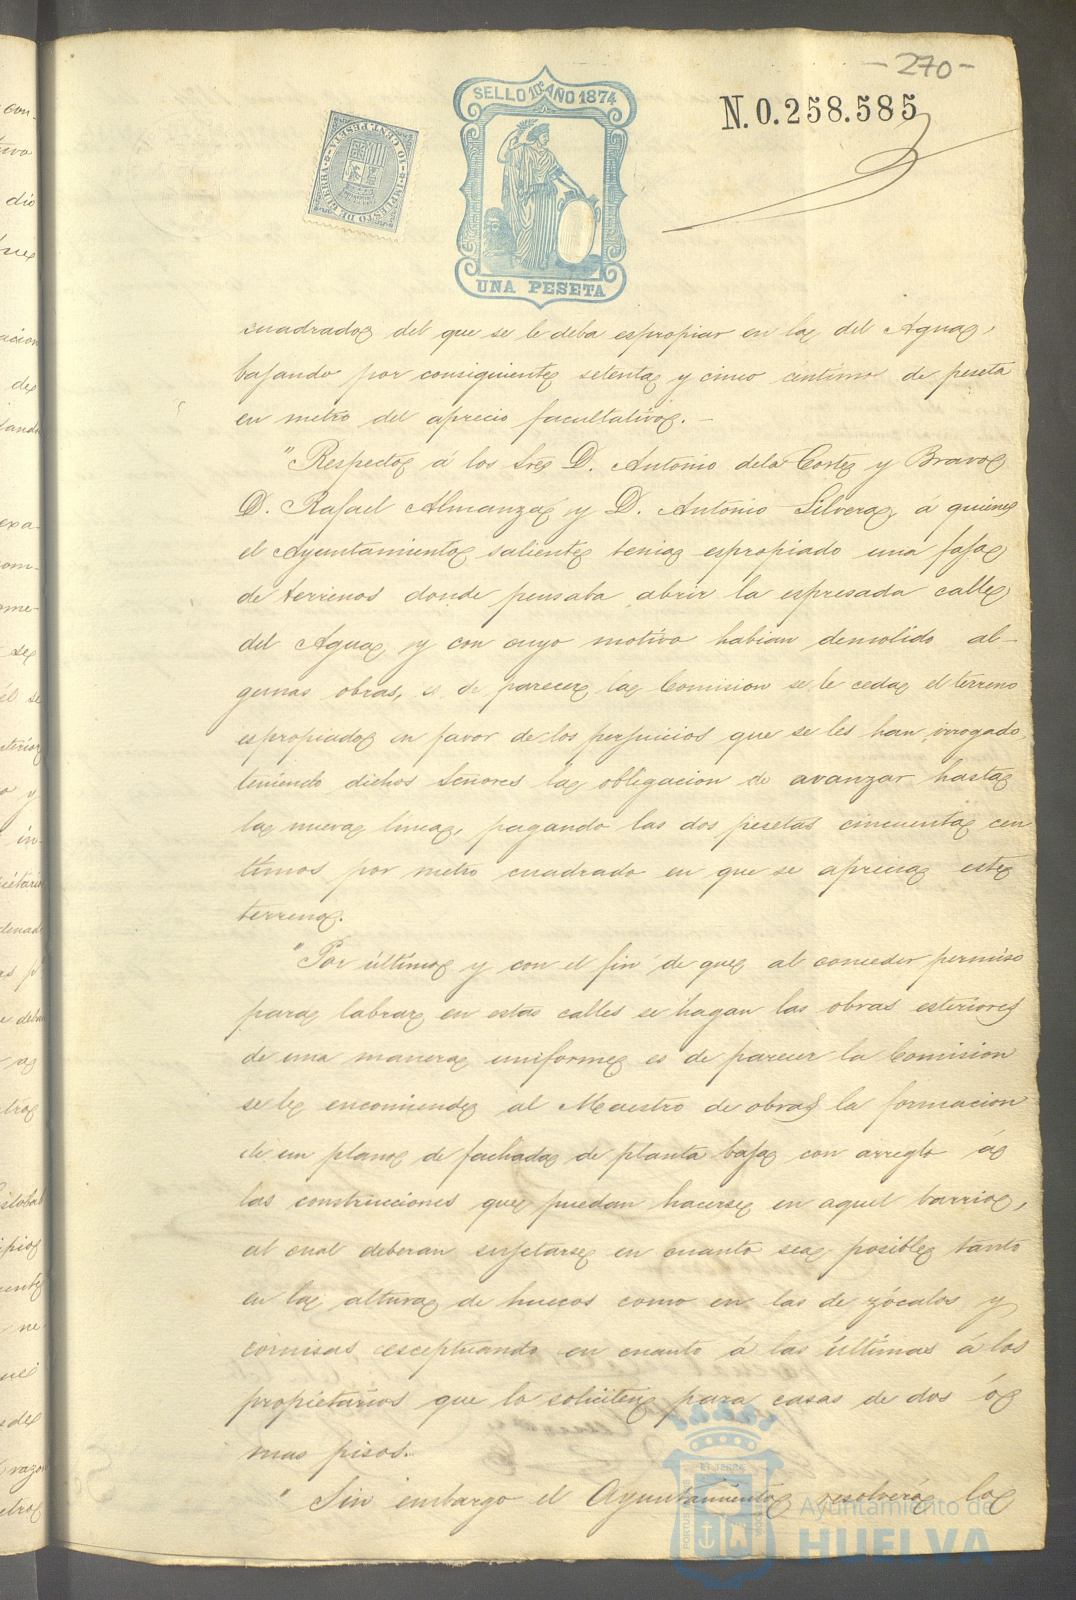 - 270 -
N. 0.258.585
SELLO 10º AÑO 1874
IMPUESTO DE GUERRA
10 CENT. PESETA
UNA PESETA
cuadrados del que se le deba espropiar en la del Agua,
bajando por consiguiente setenta y cinco céntimos de peseta
en metro del aprecio facultativo.-
"Respecto á los Sres D. Antonio de la Corte y Bravo
D. Rafael Almanza y D. Antonio Silvera, á quienes
el Ayuntamiento saliente tenia espropiado una faja
de terrenos donde pensaba abrir la espresada calle
del Agua y con cuyo motivo habian demolido al-
gunas obras, es de parecer la Comision se le ceda el terreno
espropiado en favor de los perjuicios que se les han irrogado,
teniendo dichos Señores la obligacion de avanzar hasta
la nueva linea, pagando las dos pesetas cincuenta cen
timos por metro cuadrado en que se aprecia este
terreno.
"Por último y con el fin de que al conceder permiso
para labrar en estas calles se hagan las obras esteriores
de una manera uniforme es de parecer la Comision
se le encomiende al Maestro de obras la formacion
de un plano de fachada de planta baja con arreglo á
las construcciones que puedan hacerse en aquel barrio,
al cual deberan sujetarse en cuanto sea posible tanto
en la altura de huecos como en las de zócalos y
cornisas esceptuando en cuanto á las últimas á los
propietarios que lo soliciten para casas de dos ó
mas pisos.
" Sin embargo el Ayuntamiento resolverá lo
Ayuntamiento de
HUELVA